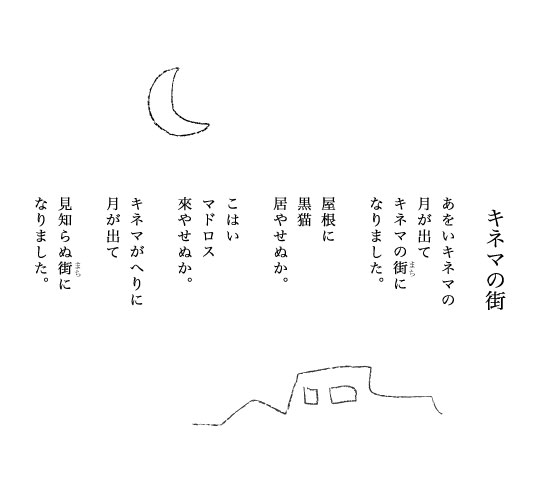 キネマの街
あをいキネマの
月が出て
キネマの街に
まち
なりました。
屋根に
黒猫
居やせぬか。
こはい
マドロス
來やせぬか。
キネマがへりに
月が出て
見知らぬ街に
まち
なりました。